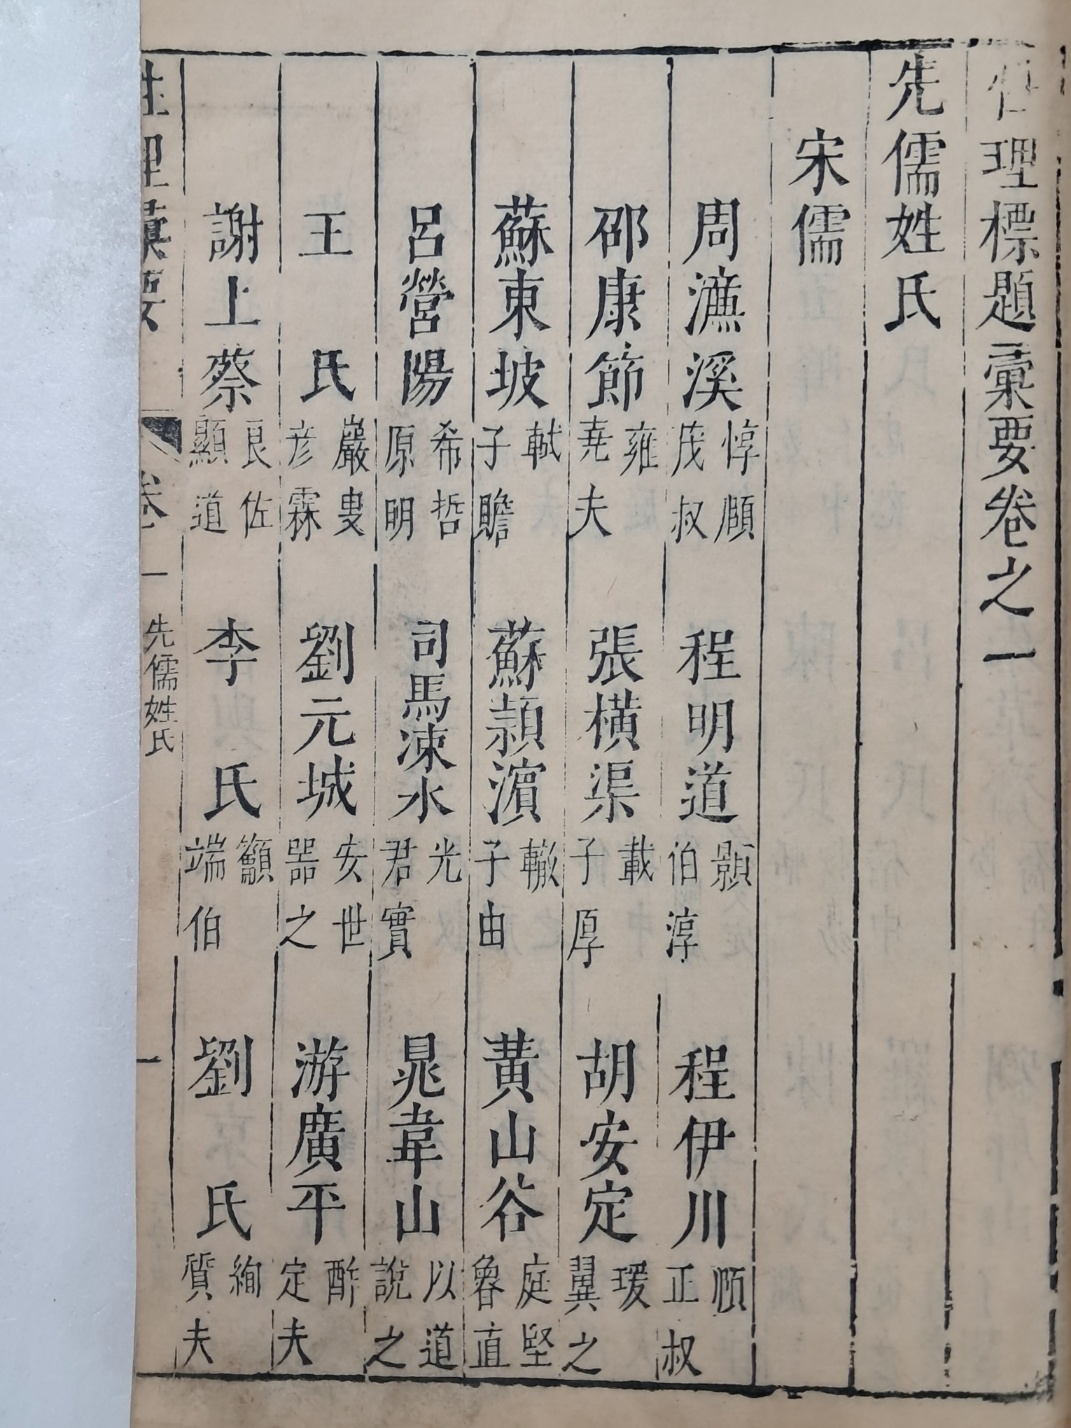 性理標題彙要卷之一
先儒姓氏
宋儒
周濂溪 惇頤 茂叔 程明道 顥 伯淳 程伊川 頤 正叔
邵康節 雍 堯夫 張橫渠 載 子厚 胡安定 瑗 翼之
蘇東坡 軾 子瞻 蘇潁濱 轍 子由 黃山谷 庭堅 魯直
呂營陽 希哲 原明 司馬涑水 光 君實 晁韋山 以道 說之
王氏 巖叟 彥霖 劉元城 安世 器之 游廣平 酢 定夫
謝上蔡 良佐 顯道 李氏 籲 端伯 劉氏 絢 質夫
性理彙要 卷一 先儒姓氏 一